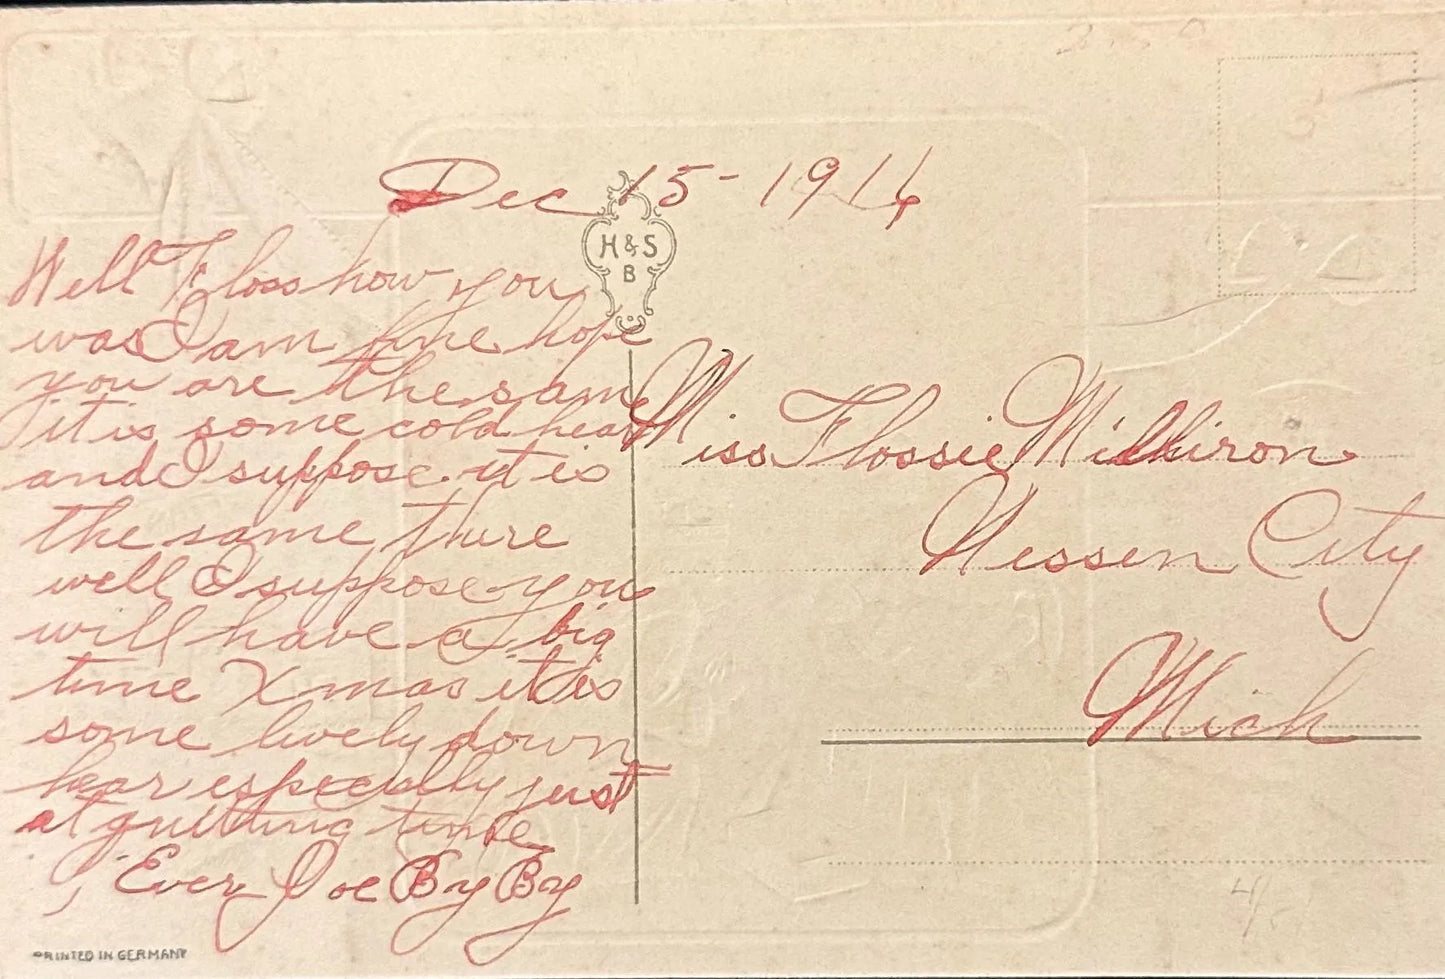 Dec 15-1914
H & S
B
Well Floss how you
was I am fine hope
you are the same
it is some cold hear
and I suppose it is
the same thure
well I suppose you
will have a big
time Xmas it is
some lively down
hear especially just
at quitting time
Ever Joe By By
Miss Flossie Millhiron
Nessen City
Mich
PRINTED IN GERMANY